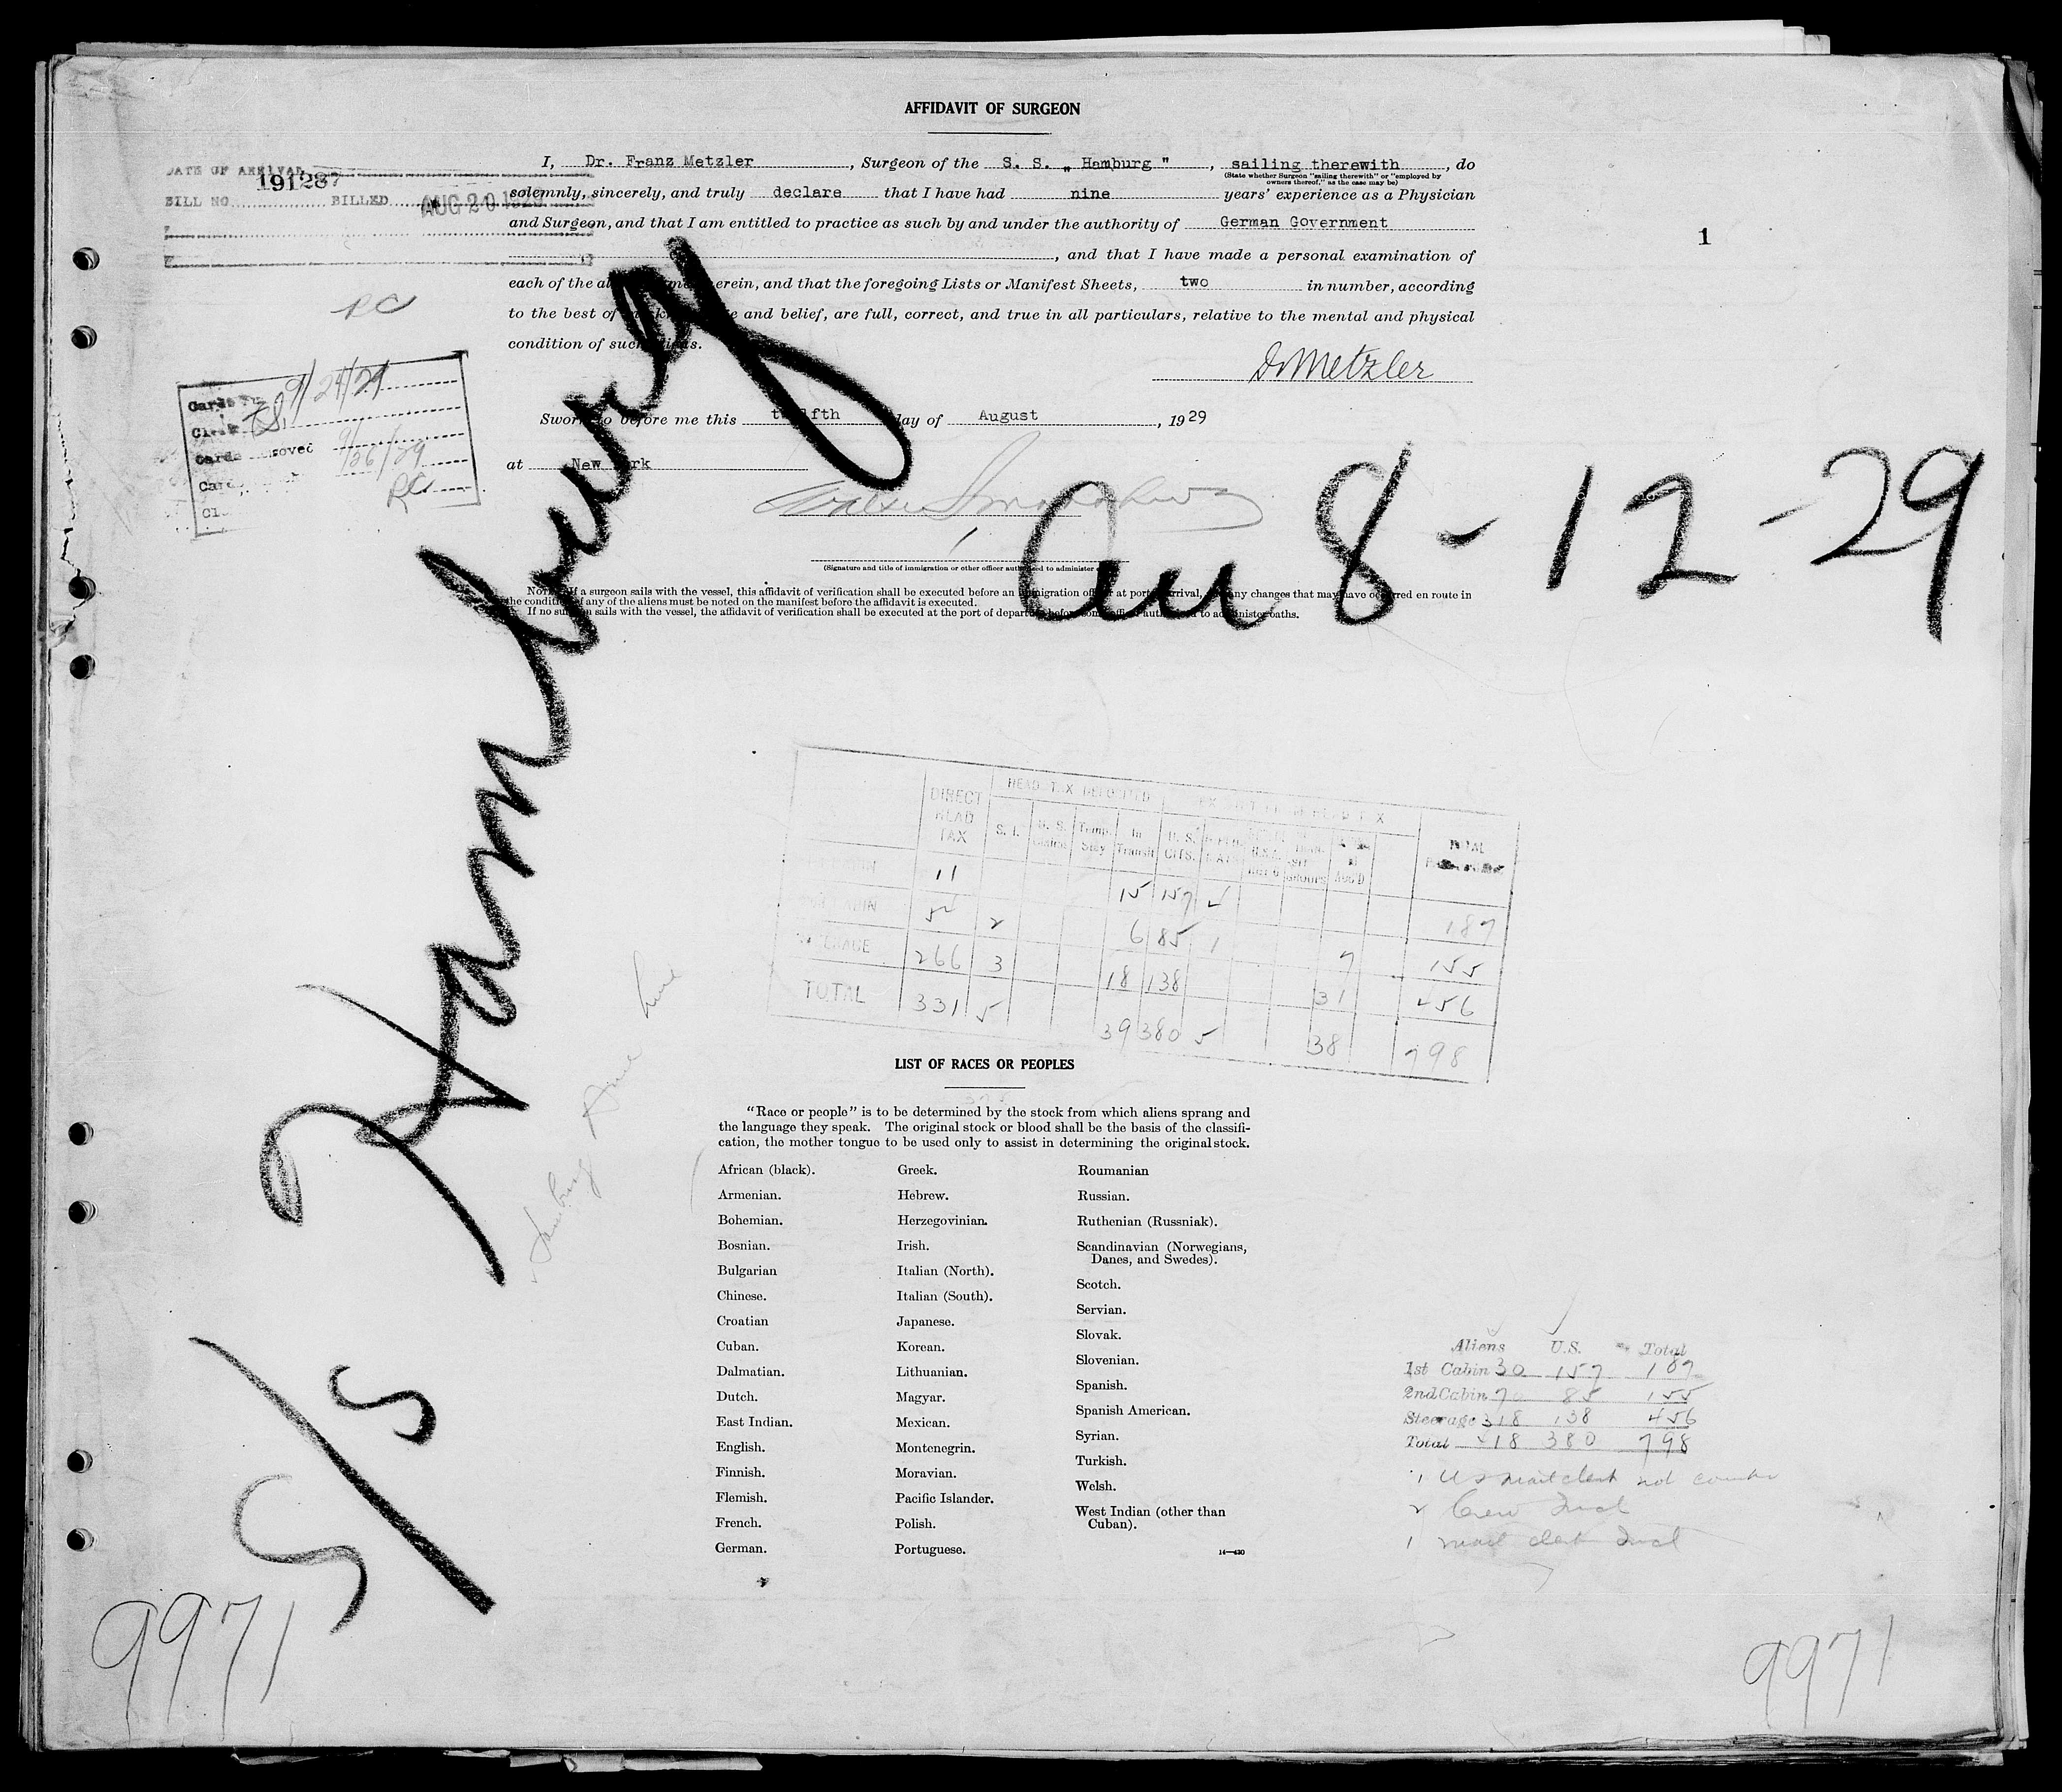 AFFIDAVIT OF SURGEON
DATE OF ARRIVAL
191287
BILL NO. BILLED AUG 20 1929
I, Dr. Franz Metzler, Surgeon of the S. S. „ Hamburg ", sailing therewith, do
(State whether Surgeon "sailing therewith" or "employed by
owners thereof," as the case may be)
solemnly, sincerely, and truly declare that I have had nine years' experience as a Physician
and Surgeon, and that I am entitled to practice as such by and under the authority of German Government
, and that I have made a personal examination of
1
each of the herein, and that the foregoing Lists or Manifest Sheets, two in number, according
to the best of and belief, are full, correct, and true in all particulars, relative to the mental and physical
condition of such
RC
Dr Metzler
9/24/29
Cards
9/26/29
RC
Sworn to before me this twelfth day of August, 1929
at New York
(Signature and title of immigration or other officer authorized to administer
NOTE.—If a surgeon sails with the vessel, this affidavit of verification shall be executed before an immigration officer at port of arrival, any changes that may have occurred en route in
the condition of any of the aliens must be noted on the manifest before the affidavit is executed.
If no surgeon sails with the vessel, the affidavit of verification shall be executed at the port of departure before some officer authorized to administer oaths.
S/S Hamburg
8-12-29
DIRECT HEAD TAX HEAD TAX DEPOSITED TOTAL
S. I. U. S. Temp. Stay In Transit U. S. CITS.
11 15 157 187
54 2 6 85 1 7 155
STEERAGE 266 3 18 138 31 456
TOTAL 331 5 39 380 5 38 798
LIST OF RACES OR PEOPLES
"Race or people" is to be determined by the stock from which aliens sprang and
the language they speak. The original stock or blood shall be the basis of the classifi-
cation, the mother tongue to be used only to assist in determining the original stock.
African (black).
Armenian.
Bohemian.
Bosnian.
Bulgarian
Chinese.
Croatian
Cuban.
Dalmatian.
Dutch.
East Indian.
English.
Finnish.
Flemish.
French.
German.
Greek.
Hebrew.
Herzegovinian.
Irish.
Italian (North).
Italian (South).
Japanese.
Korean.
Lithuanian.
Magyar.
Mexican.
Montenegrin.
Moravian.
Pacific Islander.
Polish.
Portuguese.
Roumanian
Russian.
Ruthenian (Russniak).
Scandinavian (Norwegians,
Danes, and Swedes).
Scotch.
Servian.
Slovak.
Slovenian.
Spanish.
Spanish American.
Syrian.
Turkish.
Welsh.
West Indian (other than
Cuban).
14—430
Aliens U.S. Total
1st Cabin 30 157 187
2nd Cabin 70 85 155
Steerage 318 138 456
Total 418 380 798
1 US mail clerk not
2 Crew
1 mail clerk
9971
9971